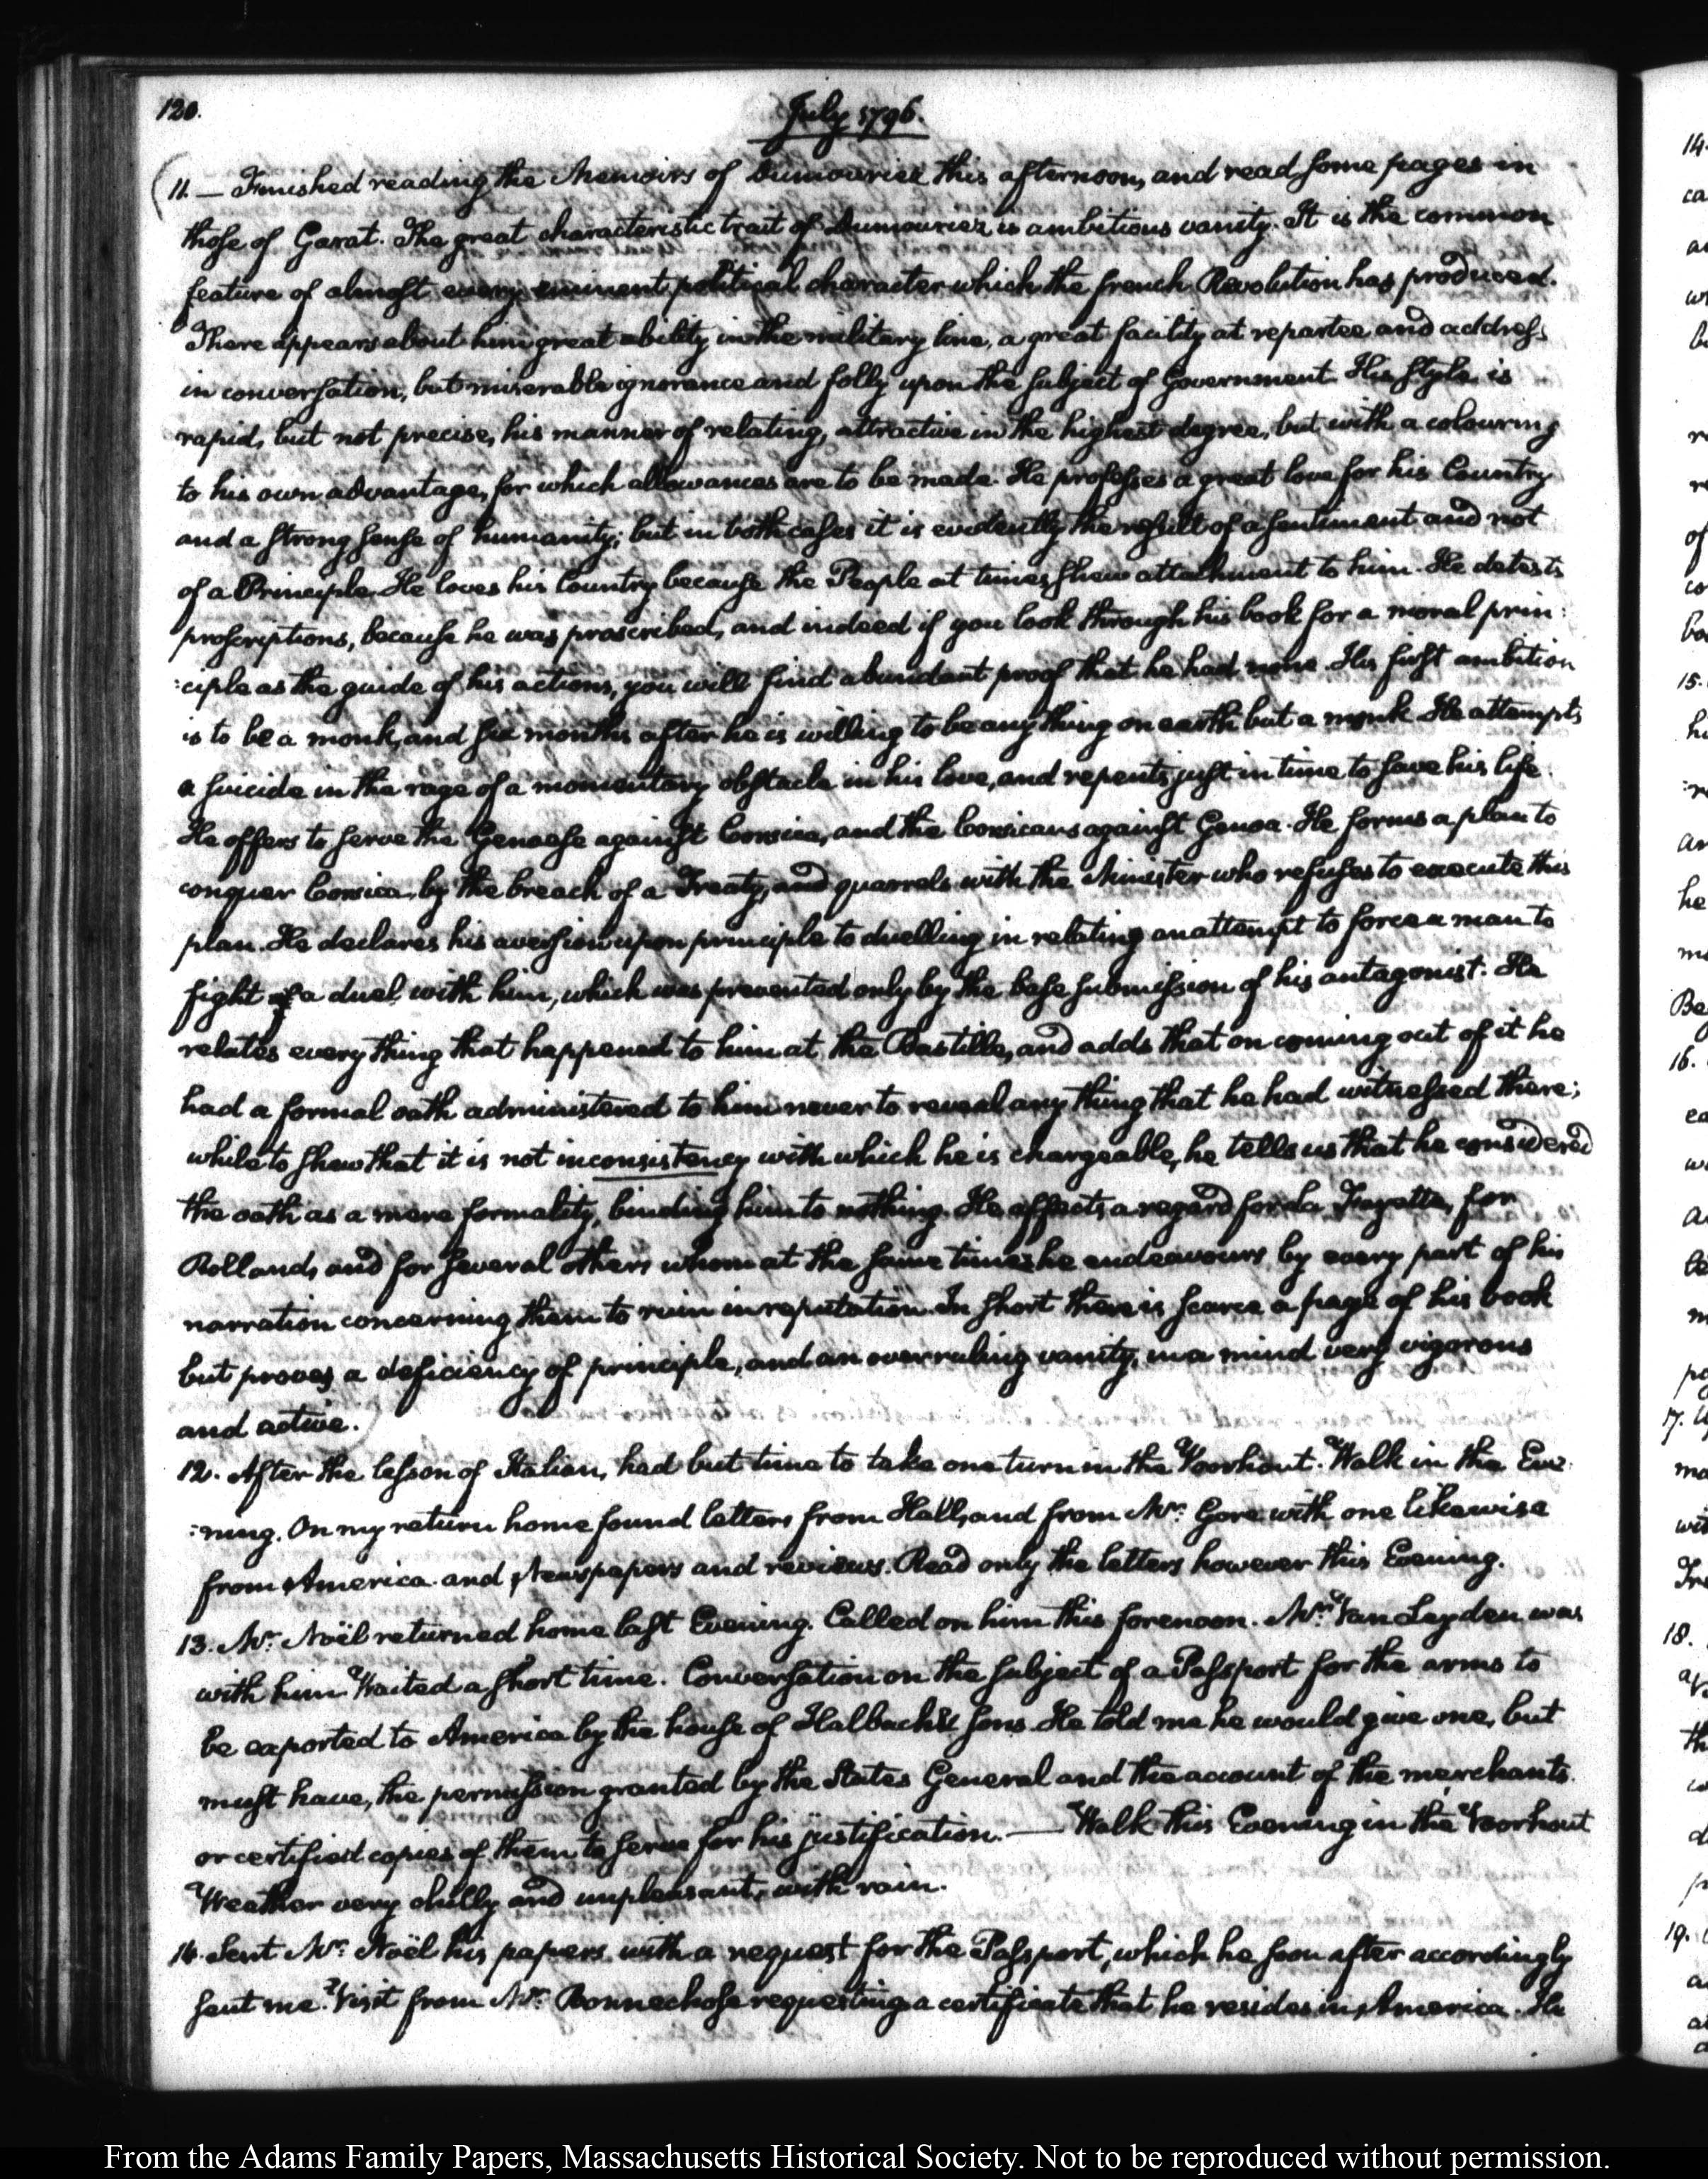 120.
July 1796.
11. — Finished reading the Memoirs of Dumouriez this afternoon, and read some pages in
those of Garat. The great characteristic trait of Dumouriez is ambitious vanity. It is the common
feature of almost every eminent political character which the french Revolution has produced.
There appears about him great ability in the military line, a great facility at repartee and address
in conversation, but miserable ignorance and folly upon the subject of Government. His style is
rapid, but not precise, his manner of relating, attractive in the highest degree, but with a colouring
to his own advantage, for which allowances are to be made. He professes a great love for his Country
and a strong sense of humanity; but in both cases it is evidently the result of a sentiment and not
of a Principle. He loves his Country because the People at times shew attachment to him. He detests
proscriptions, because he was proscribed, and indeed if you look through his book for a moral prin:
:ciple as the guide of his actions, you will find abundant proof that he had none. His first ambition
is to be a monk, and six months after he is willing to be any thing on earth but a monk. He attempts
a suicide in the rage of a momentary obstacle in his love, and repents just in time to save his life.
He offers to serve the Genoese against Corsica, and the Corsicans against Genoa. He forms a plan to
conquer Corsica by the breach of a Treaty, and quarrels with the Minister who refuses to execute this
plan. He declares his aversion upon principle to duelling in relating an attempt to force a man to
fight a duel with him, which was prevented only by the base submission of his antagonist. He
relates every thing that happened to him at the Bastille, and adds that on coming out of it he
had a formal oath administered to him never to reveal any thing that he had witnessed there;
while to shew that it is not inconsistency with which he is chargeable, he tells us that he considered
the oath as a mere formality, binding him to nothing. He affects a regard for La Fayette, for
Rolland, and for several others whom at the same time he endeavours by every part of his
narration concerning them to ruin in reputation. In short there is scarce a page of his book
but proves a deficiency of principle, and an overruling vanity, in a mind very vigorous
and active.
12. After the lesson of Italian, had but time to take one turn in the Voorhout. Walk in the Eve:
:ning. On my return home found letters from Hall, and from Mr. Gore with one likewise
from America and Newspapers and reviews. Read only the letters however this Evening.
13. Mr. Noël returned home last Evening. Called on him this forenoon. Mr. Van Leyden was
with him. Waited a short time. Conversation on the subject of a Passport for the arms to
be exported to America by the house of Halbach & sons. He told me he would give one, but
must have, the permission granted by the States General and the account of the merchants
or certified copies of them to serve for his justification. — Walk this Evening in the Voorhout
Weather very chilly and unpleasant, with rain.
14. Sent Mr. Noël his papers with a request for the Passport, which he soon after accordingly
sent me. Visit from Mr. Bonnechose requesting a certificate that he resides in America. He
From the Adams Family Papers, Massachusetts Historical Society. Not to be reproduced without permission.